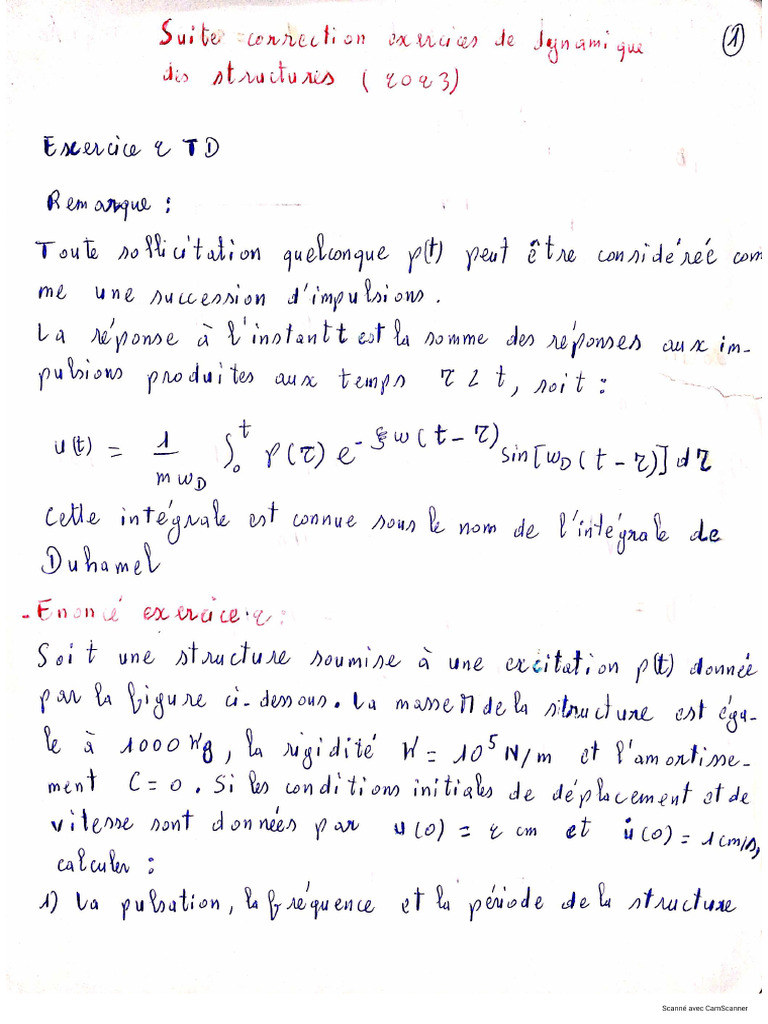 Suite correction exercices de dynamique
(1)
des structures (2023)
Exercice 2 TD
Remarque :
Toute sollicitation quelconque p(t) peut être considérée com
me une succession d'impulsions.
La réponse à l'instant t est la somme des réponses aux im-
pulsions produites aux temps τ < t, soit :
u(t) = 1/(m ω_D) ∫₀ᵗ P(τ) e^(-ξω(t-τ)) sin[ω_D(t-τ)] dτ
Cette intégrale est connue sous le nom de l'intégrale de
Duhamel
- Enoncé exercice 2 :
Soit une structure soumise à une excitation p(t) donnée
par la figure ci-dessous. La masse M de la structure est éga-
le à 1000 Kg, la rigidité K = 10⁵ N/m et l'amortisse-
ment C = 0. Si les conditions initiales de déplacement et de
vitesse sont données par u(0) = 2 cm et u̇(0) = 1 cm/s,
calculer :
1) La pulsation, la fréquence et la période de la structure
Scanné avec CamScanner